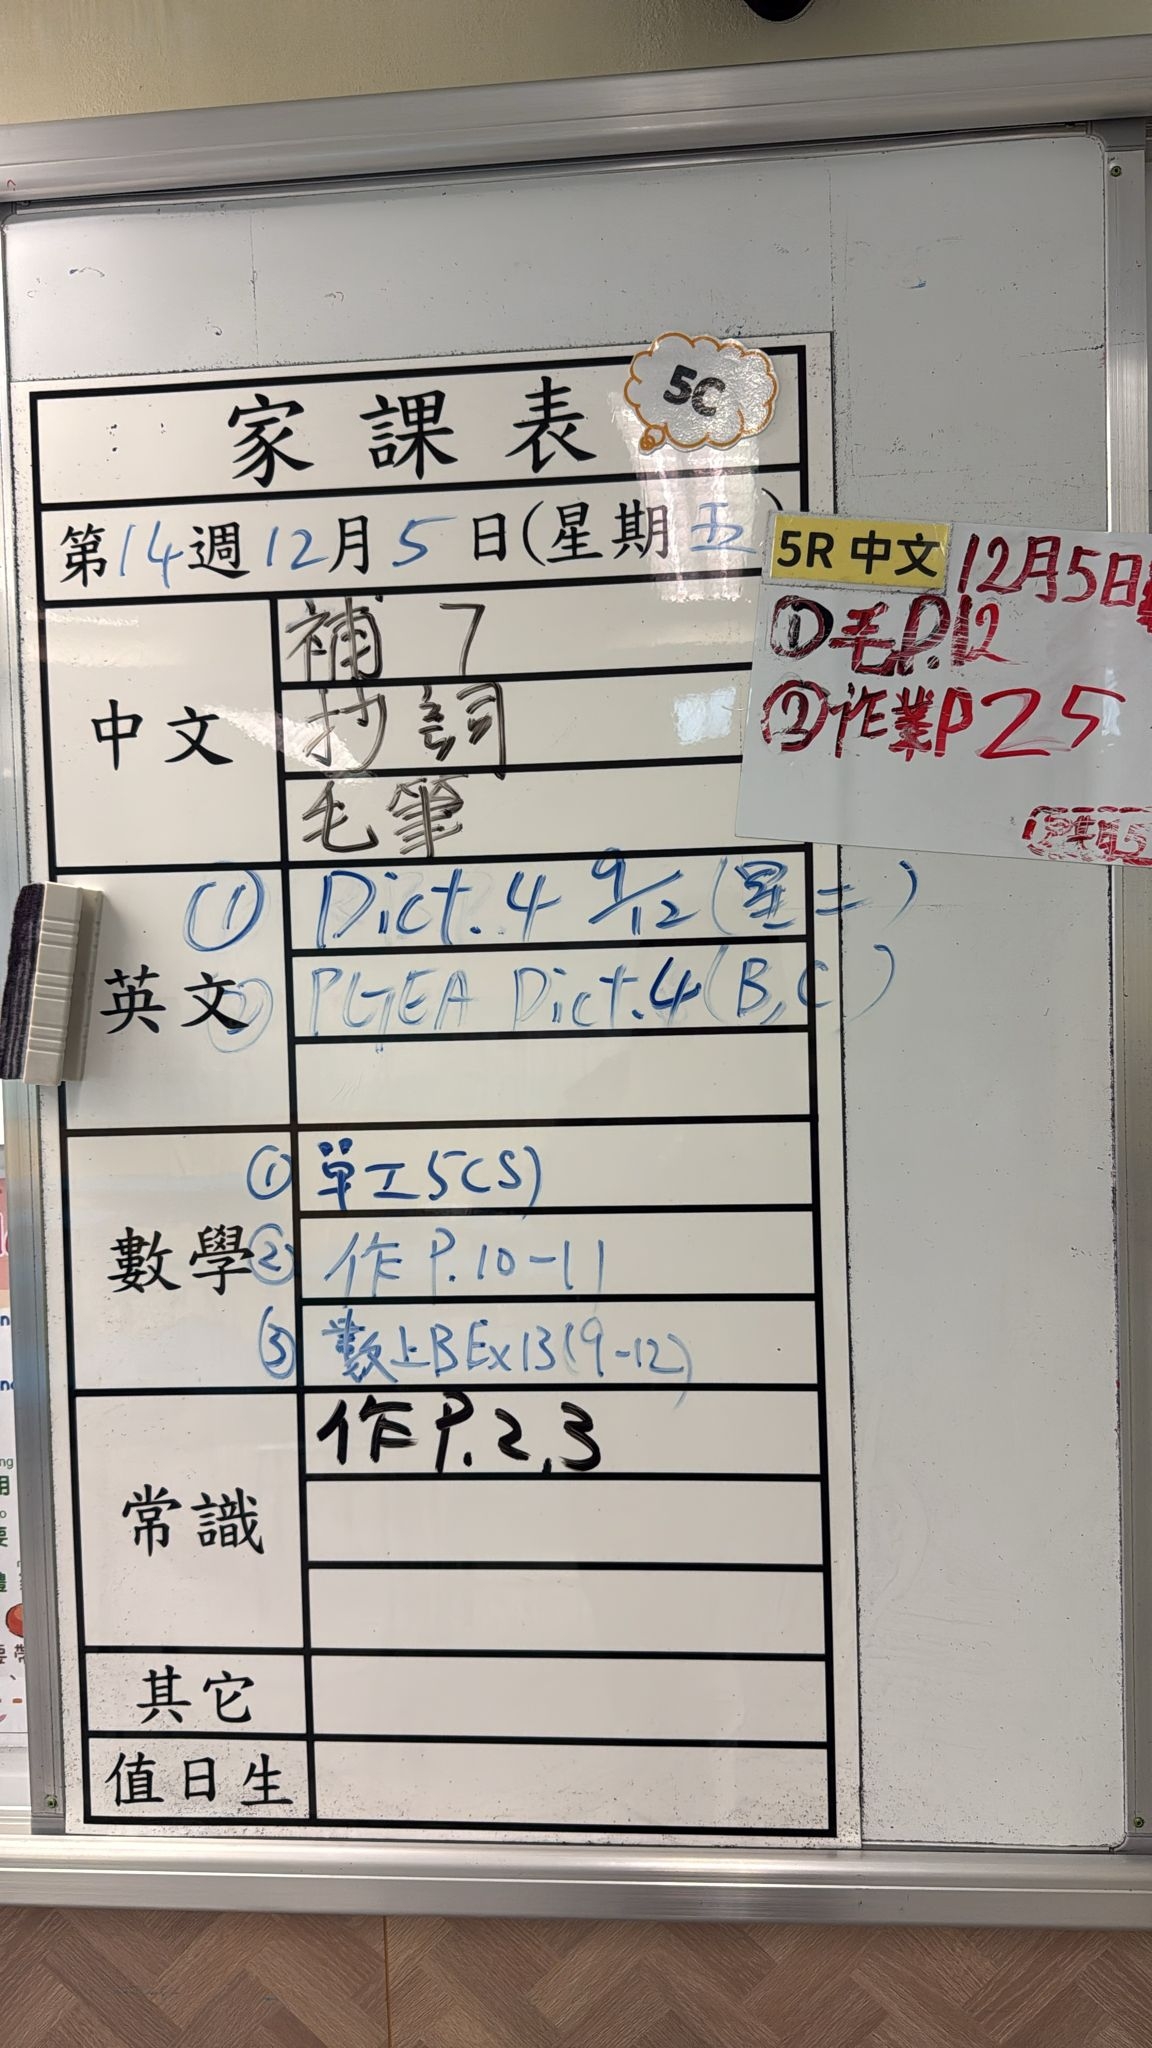 家課表
5C
第14週12月5日(星期五)
中文
補7
抄詞
毛筆
5R 中文
12月5日
①毛P.12
②作業P25
英文
① Dict.4 9/12(星二)
② PGEA Dict.4(B,C)
數學
① 單工5(S)
② 作P.10-11
③ 數上B Ex13(9-12)
常識
作P.2,3
其它
值日生